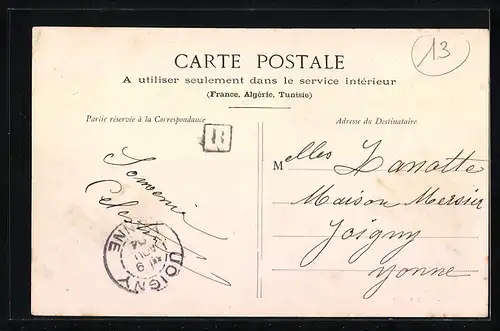 CARTE POSTALE
13
A utiliser seulement dans le service intérieur
(France, Algérie, Tunisie)
Partie réservée à la Correspondance
Adresse du Destinataire
B
Melles Lanotte
Souvenir
Maison Mersier
Joigny
Yonne
JOIGNY
YONNE
9
AOU
04